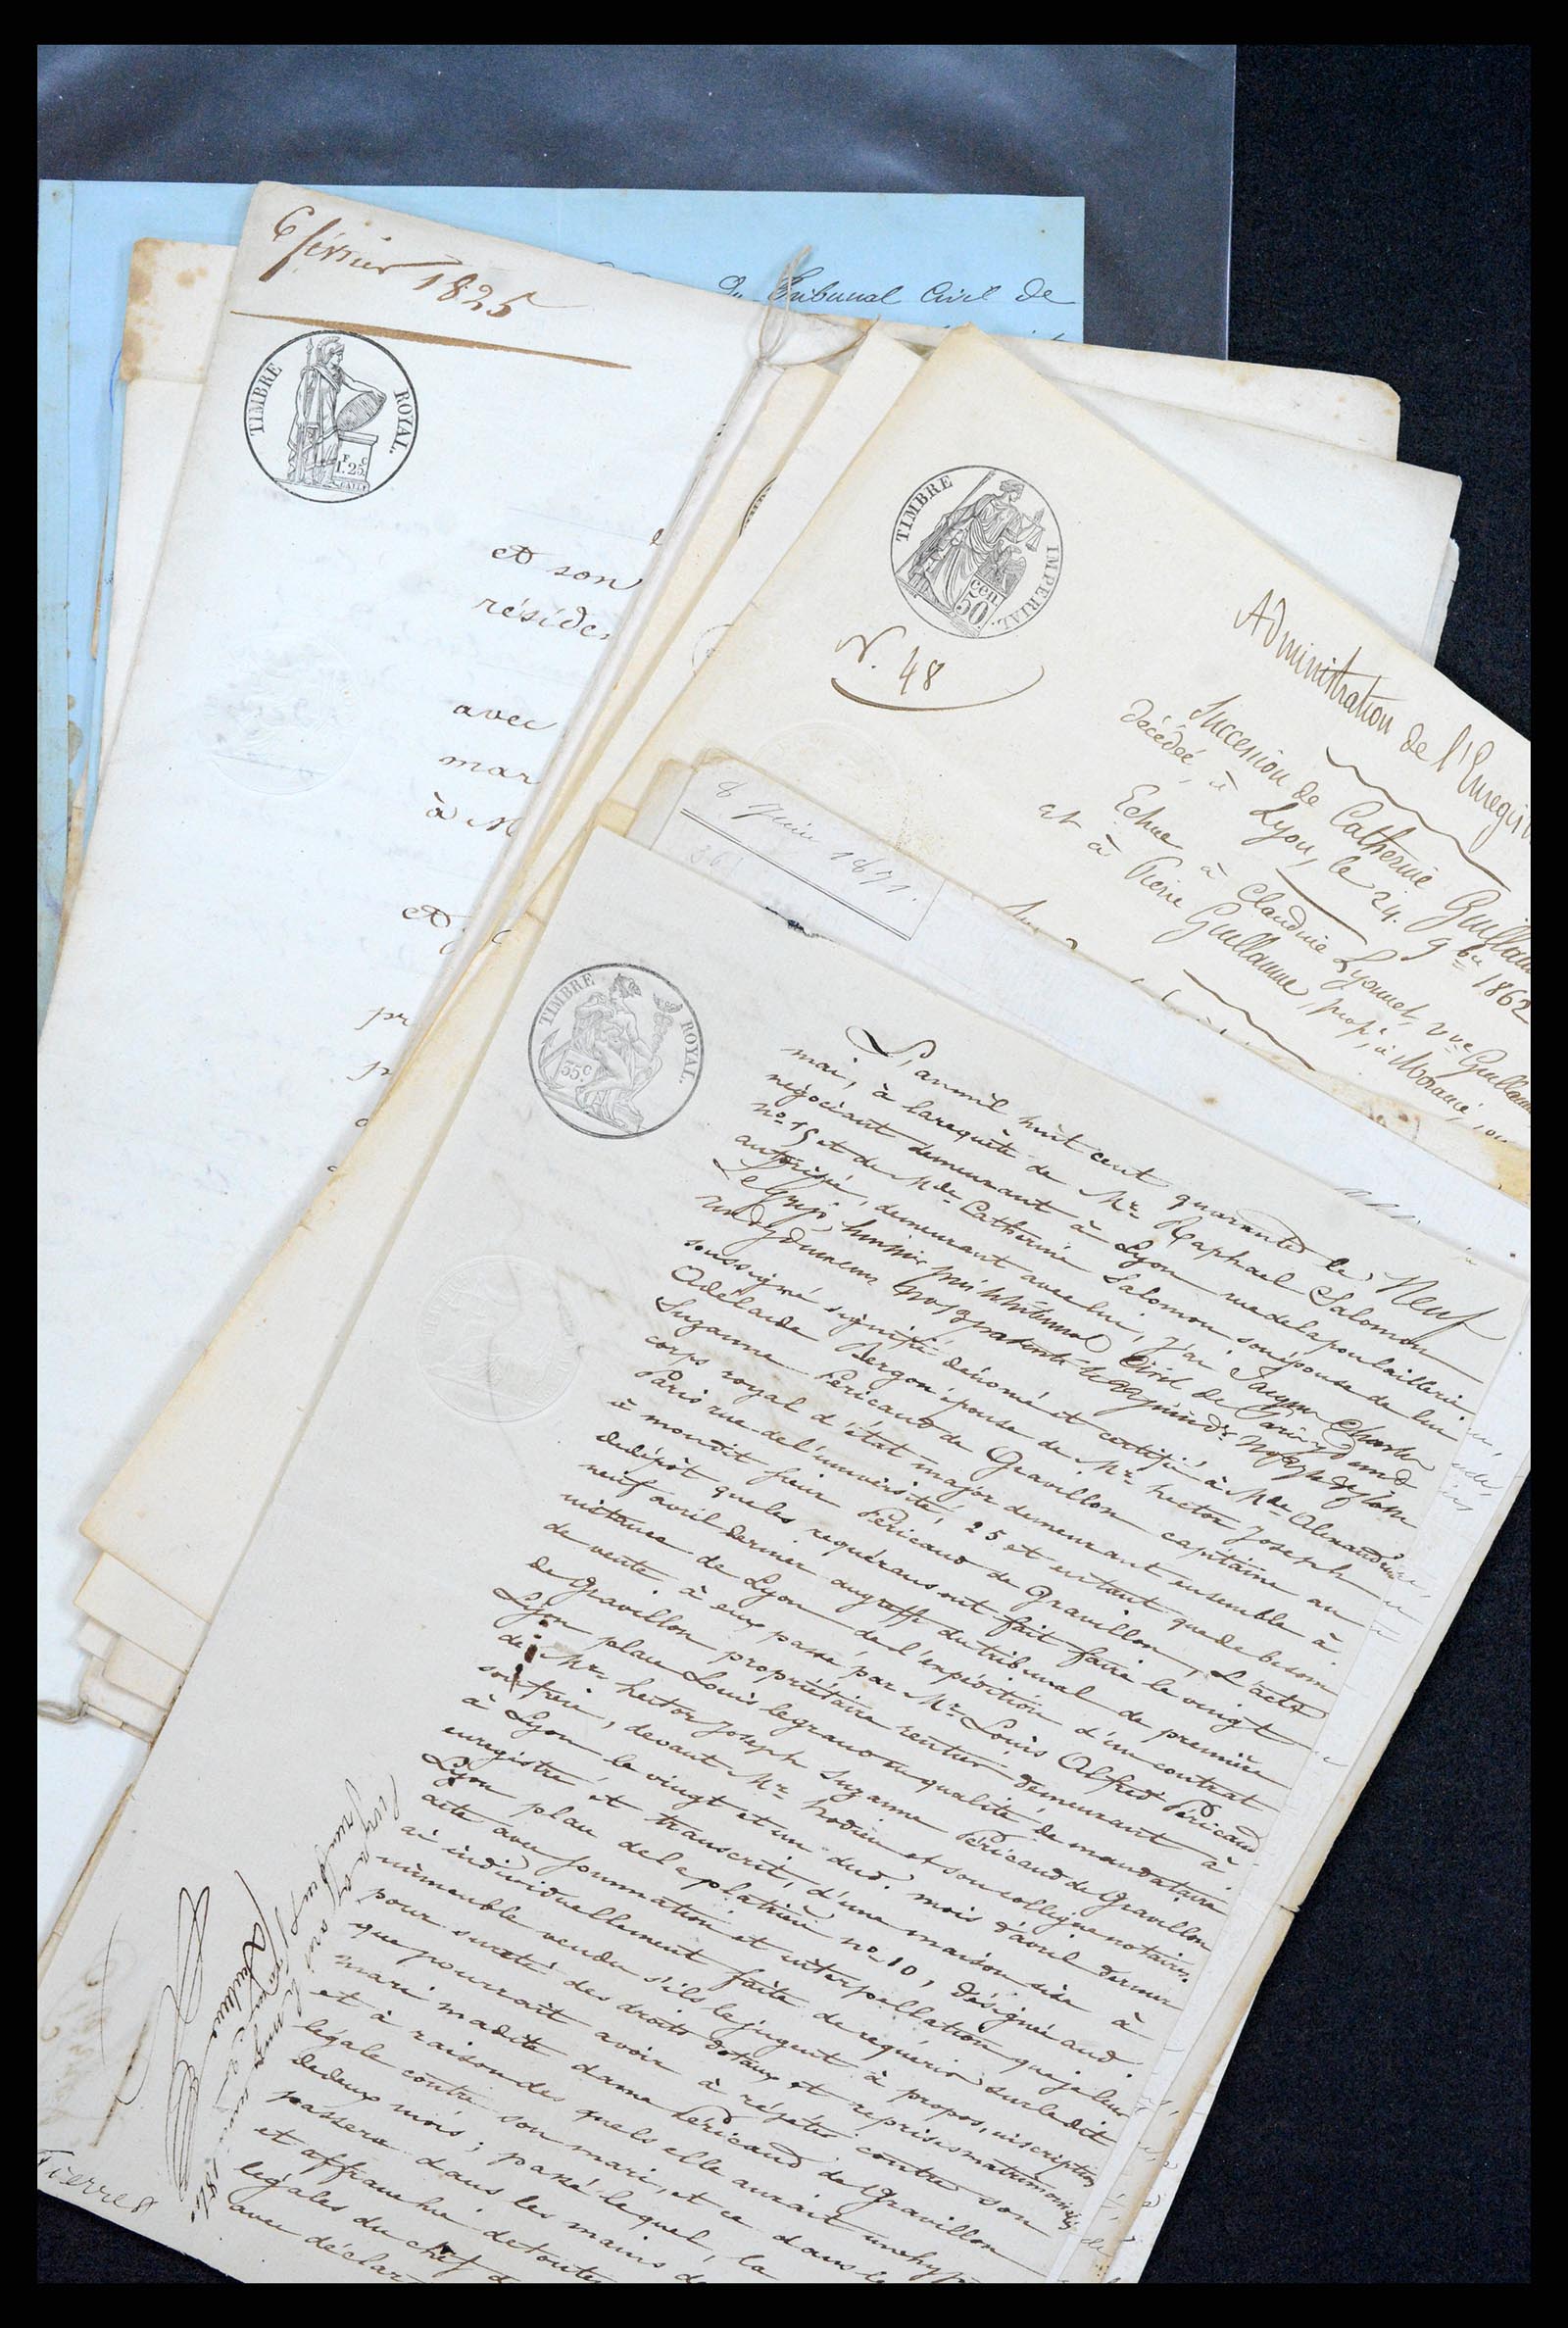 6 février 1825
TIMBRE ROYAL.
F C
1.25
et son
réside
avec
mar
à M
et
pr
p
du Tribunal Civil de
TIMBRE IMPERIAL.
50 cen.
N. 48
Administration de l'Enregi
Succession de Catherine Guillau
décédée, à Lyon, le 24. 9bre 1862
Echue à Claudine Lyonnet, vve Guillau
et à Pierre Guillaume, propre, à Morancé,
8 Juin 1871.
TIMBRE ROYAL.
35 c
L'an mil huit cent quarante le Neuf
mai, à la requête de Mr Raphael Salomon
négociant demeurant à Lyon rue de la poulaillerie
no 19 et de Mde Catherine Salomon son épouse de lui
autorisée, demeurant avec lui, j'ai Jacques Charles
huissier Civil de
soussigné signifié dénoncé et certifié à Mde Alexandrine
Adélaide Bergon épouse de Mr hector Joseph
Suzanne Péricaud de Gravillon capitaine au
corps royal d'état major demeurant ensemble à
Paris rue de l'université, 25 et en tant que de besoin
à mondit sieur Péricaud de Gravillon, L'acte
de dépôt que les requérans ont fait faire le vingt
neuf avril dernier au greffe du tribunal de première
instance de Lyon de l'expédition d'un contrat
de vente à eux passé par Mr Louis Alfred Péricaud
de Gravillon propriétaire rentier demeurant à
Lyon place Louis legrand en qualité de mandataire
de Mr hector Joseph Suzanne Péricaud de Gravillon
son frère, devant Mr hodieu et son collègue notaires
à Lyon le vingt et un dud. mois d'avril dernier
enregistré et transcrit, d'une maison sise à
Lyon place de la platière no 10, désignée aud.
acte avec sommation et interpellation que je leur
ai individuellement faite de requérir sur ledit
immeuble vendu s'ils le jugent à propos, inscription
pour sureté des droits dotaux et reprises matrimoniales
que pourrait avoir à répéter contre son
mari madite dame Péricaud de Gravillon
et à raison des quels elle aurait une hyp
légale contre son mari, et ce dans le
de deux mois; passé lequel, la
passera dans les mains d
et affranchi de toute
légales du chef d
avec déclar